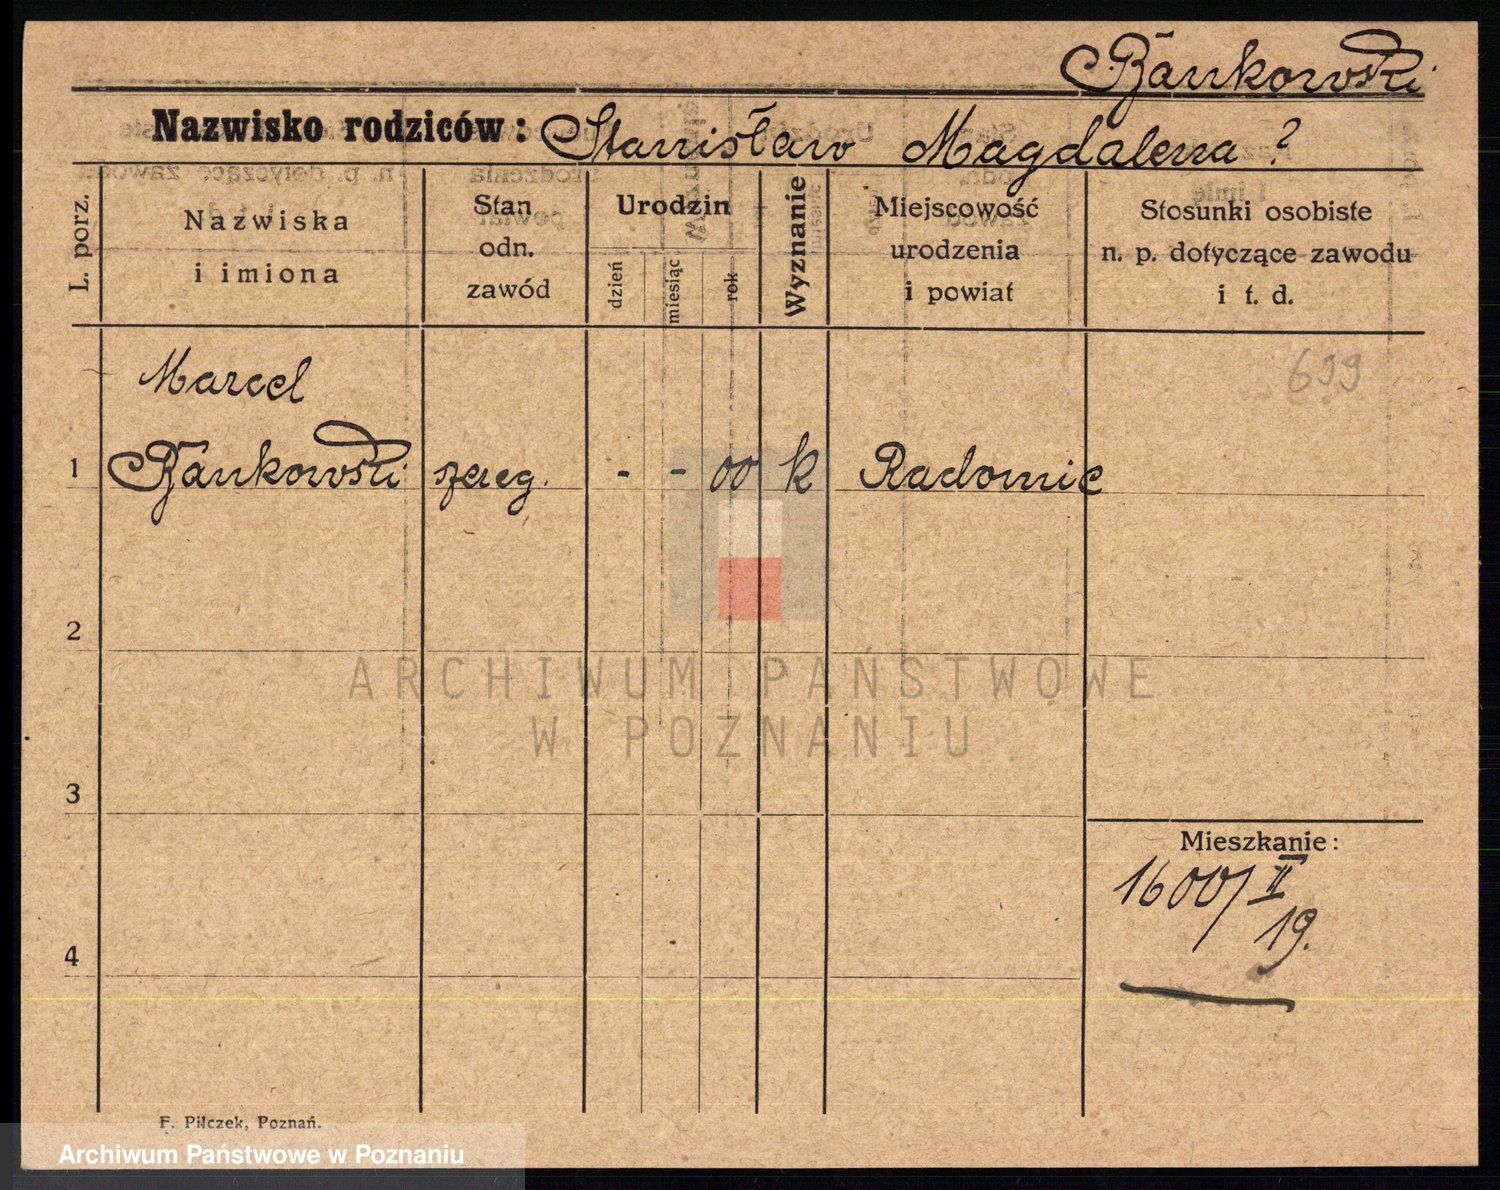 Bańkowski
Nazwisko rodziców: Stanisław Magdalena ?
L. porz.
Nazwiska
i imiona
Stan
odn.
zawód
Urodzin
dzień
miesiąc
rok
Wyznanie
Miejscowość
urodzenia
i powiat
Stosunki osobiste
n. p. dotyczące zawodu
i t. d.
699
Marcel
1 Bańkowski szereg. - - 00 k Radomic
2
3
4
Mieszkanie:
1600/II
19.
ARCHIWUM PAŃSTWOWE
W POZNANIU
F. Pilczek, Poznań.
Archiwum Państwowe w Poznaniu